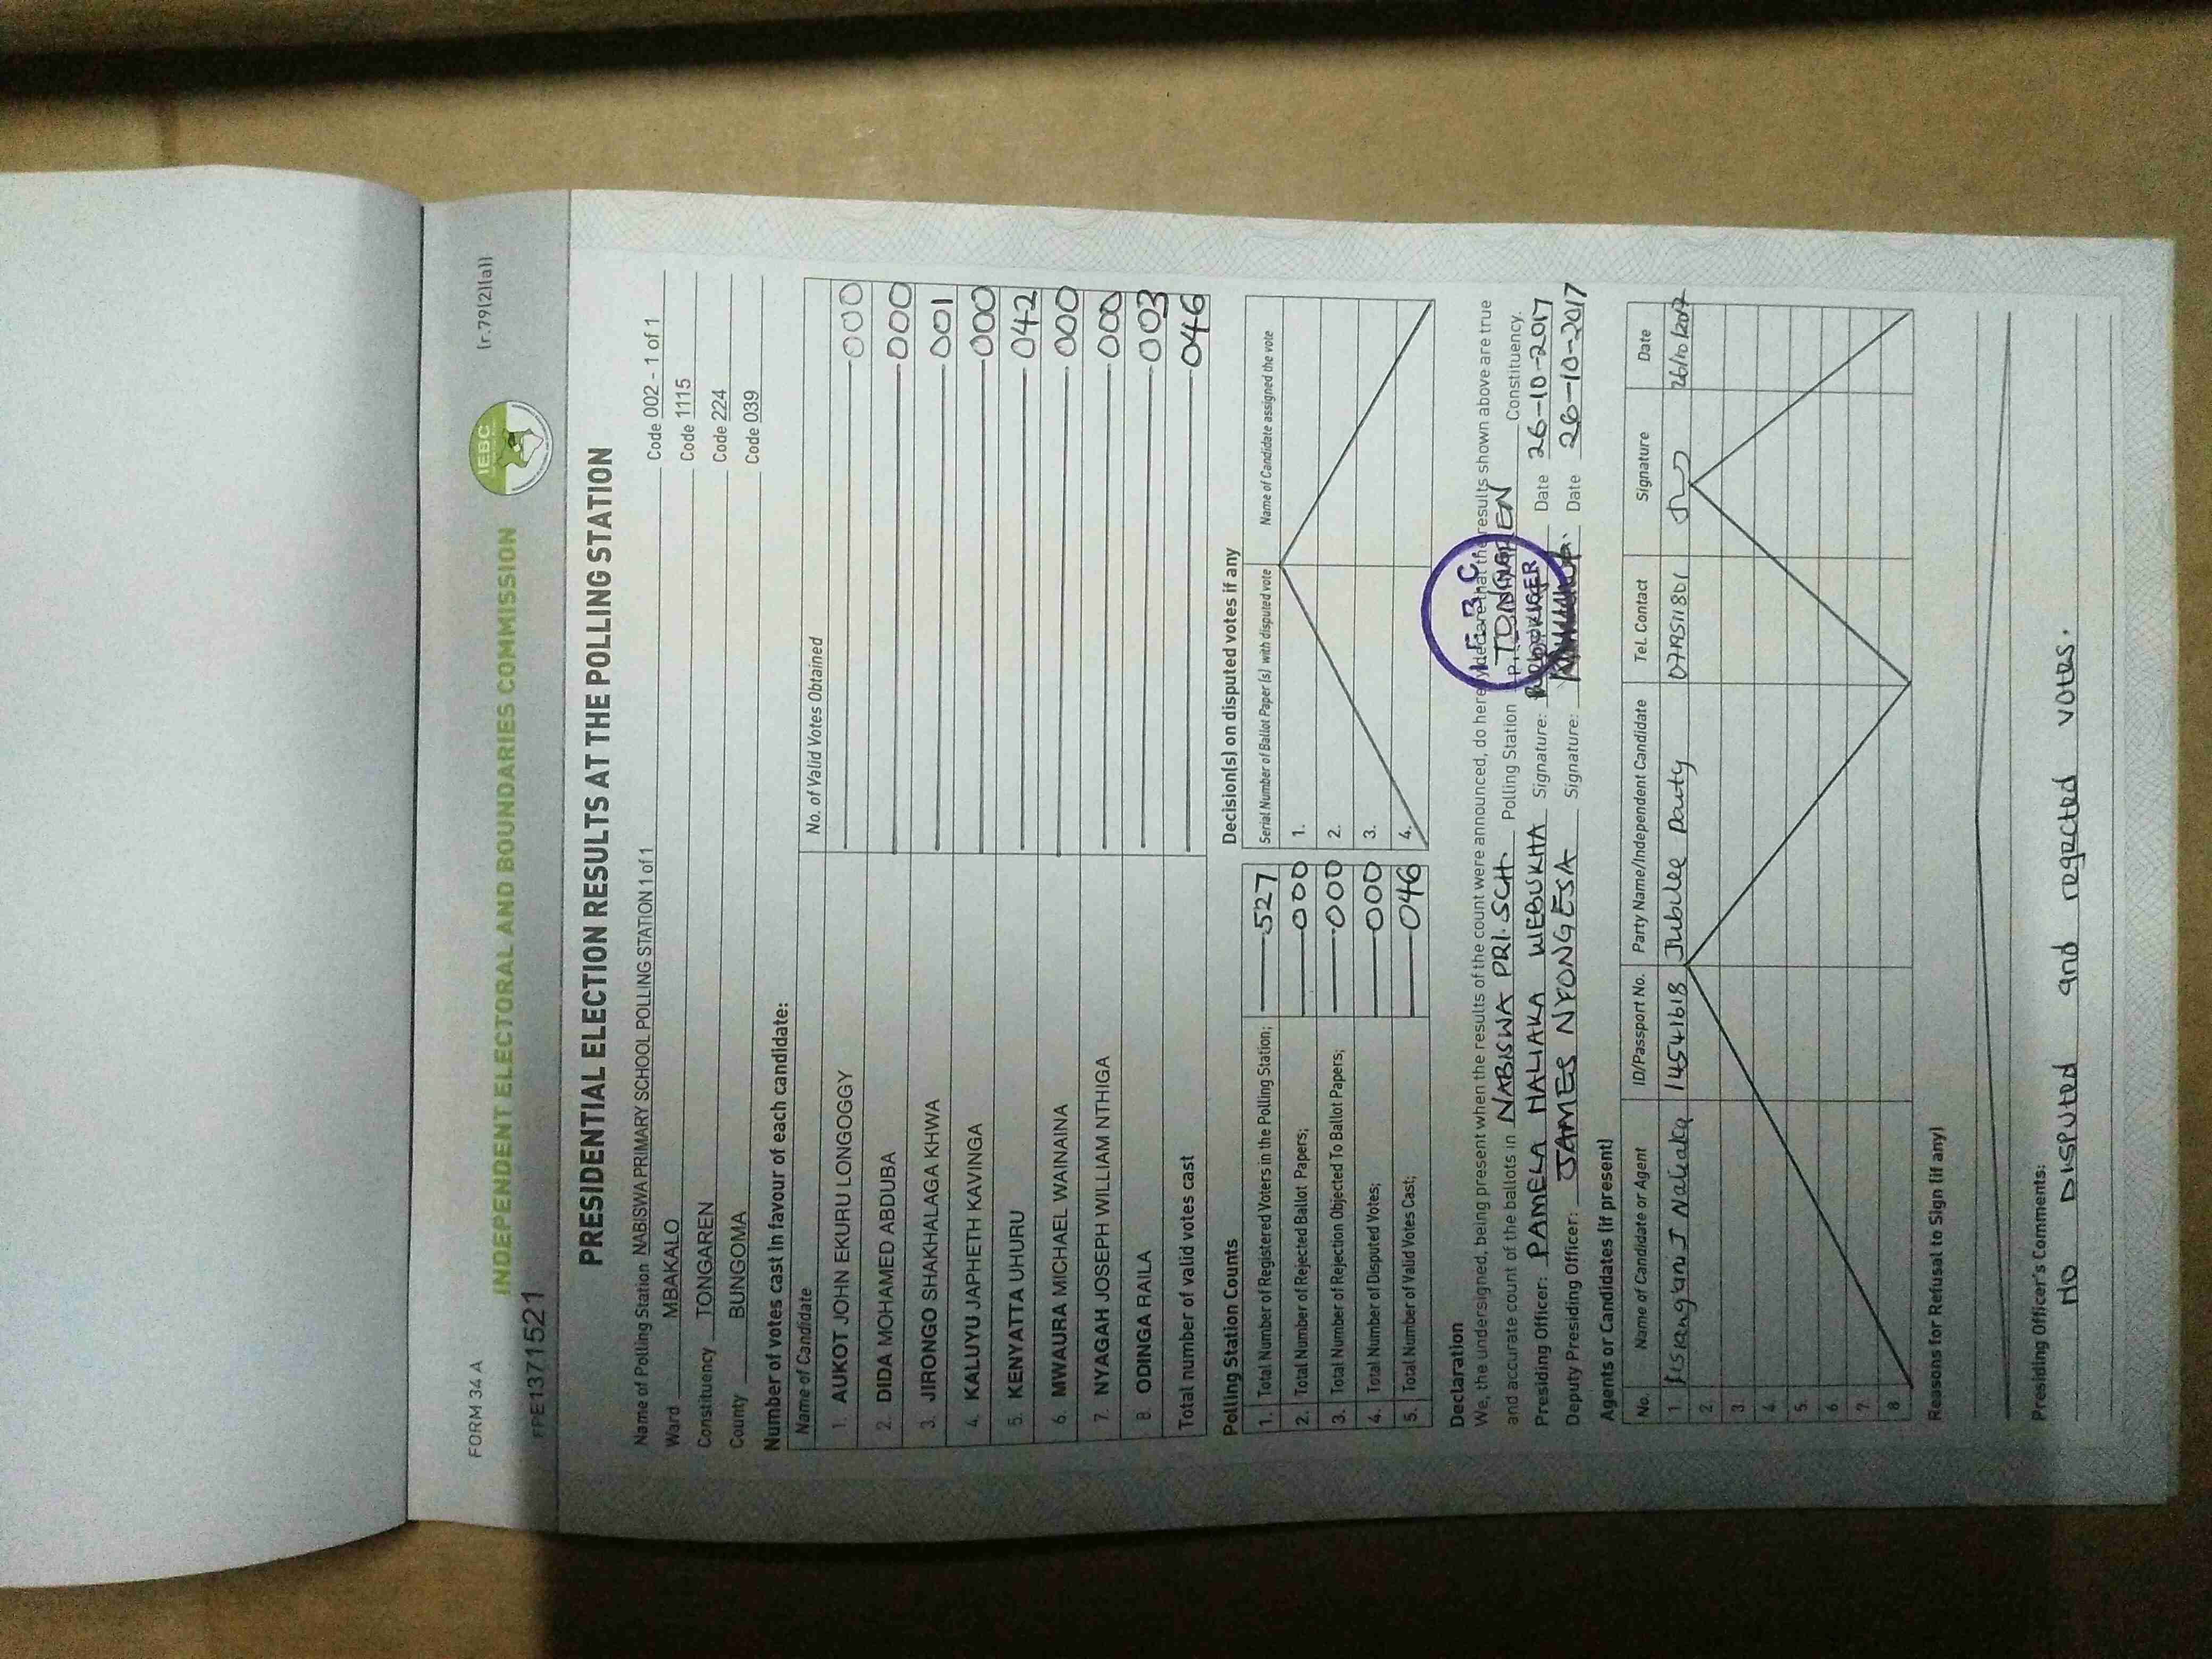 FORM 34 A
(r.79(2)(a))
INDEPENDENT ELECTORAL AND BOUNDARIES COMMISSION
IEBC
FPE1371521
PRESIDENTIAL ELECTION RESULTS AT THE POLLING STATION
Name of Polling Station NABISWA PRIMARY SCHOOL POLLING STATION 1 of 1 Code 002 - 1 of 1
Ward MBAKALO Code 1115
Constituency TONGAREN Code 224
County BUNGOMA Code 039
Number of votes cast in favour of each candidate:
Name of Candidate No. of Valid Votes Obtained
1. AUKOT JOHN EKURU LONGOGGY 000
2. DIDA MOHAMED ABDUBA 000
3. JIRONGO SHAKHALAGA KHWA 001
4. KALUYU JAPHETH KAVINGA 000
5. KENYATTA UHURU 042
6. MWAURA MICHAEL WAINAINA 000
7. NYAGAH JOSEPH WILLIAM NTHIGA 000
8. ODINGA RAILA 003
Total number of valid votes cast 046
Polling Station Counts
1. Total Number of Registered Voters in the Polling Station; 527
2. Total Number of Rejected Ballot Papers; 000
3. Total Number of Rejection Objected To Ballot Papers; 000
4. Total Number of Disputed Votes; 000
5. Total Number of Valid Votes Cast; 046
Decision(s) on disputed votes if any
Serial Number of Ballot Paper (s) with disputed vote Name of Candidate assigned the vote
1.
2.
3.
4.
Declaration
We, the undersigned, being present when the results of the count were announced, do hereby declare that the results shown above are true
and accurate count of the ballots in NABISWA PRI. SCH. Polling Station TONGAREN Constituency.
Presiding Officer: PAMELA NALIAKA WEBUKHA Signature: Date 26-10-2017
Deputy Presiding Officer: JAMES NYONGESA Signature: Date 26-10-2017
I.E.B.C
Agents or Candidates (if present)
No. Name of Candidate or Agent ID/Passport No. Party Name/Independent Candidate Tel. Contact Signature Date
1. Naliaka 14541618 Jubilee Party 0719511801 26/10/2017
2.
3.
4.
5.
6.
7.
8
Reasons for Refusal to Sign (if any)
Presiding Officer's Comments:
NO DISPUTED and regected votes.